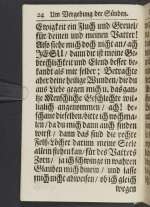 24 Um Vergebung der Sünden.
Ewigkeit ein Fluch und Greuel/
für deinen und meinen Vatter!
Also siehe mich doch nicht an/ ach
JESU/ dann du für meine Ge-
brechlichkeit und Elend besser be-
kandt als mir selber: Betrachte
aber deine heilige Wunden/ die du
aus Liebe gegen mich u. das gan-
tze Menschliche Geschlechte wil-
lialich angenommen/ ach! be-
schaue dieselben/ bitte ich
ma/ da du mich dann auch finden
wirst/ dann das sind die rechte
Felß-Löcher darinn meine Seele
allein stehen kan/ für des Vatters
Zorn/ ja ich schwinge in wahren
Glauben mich hinein/ und lasse
mich nicht abweisen/ ob ich gleich
wegen